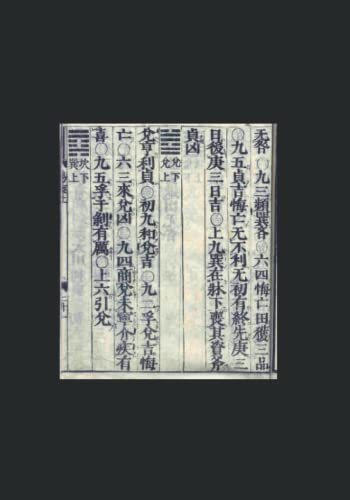 无咎○九三頻巽吝○六四悔亡田獲三品
○九五貞吉悔亡无不利无初有終先庚三
日後庚三日吉○上九巽在牀下喪其資斧
貞凶
䷹兌下
兌上
兌亨利貞○初九和兌吉○九二孚兌吉悔
亡○六三來兌凶○九四商兌未寧介疾有
喜○九五孚于剝有厲○上六引兌
䷺坎下
巽上